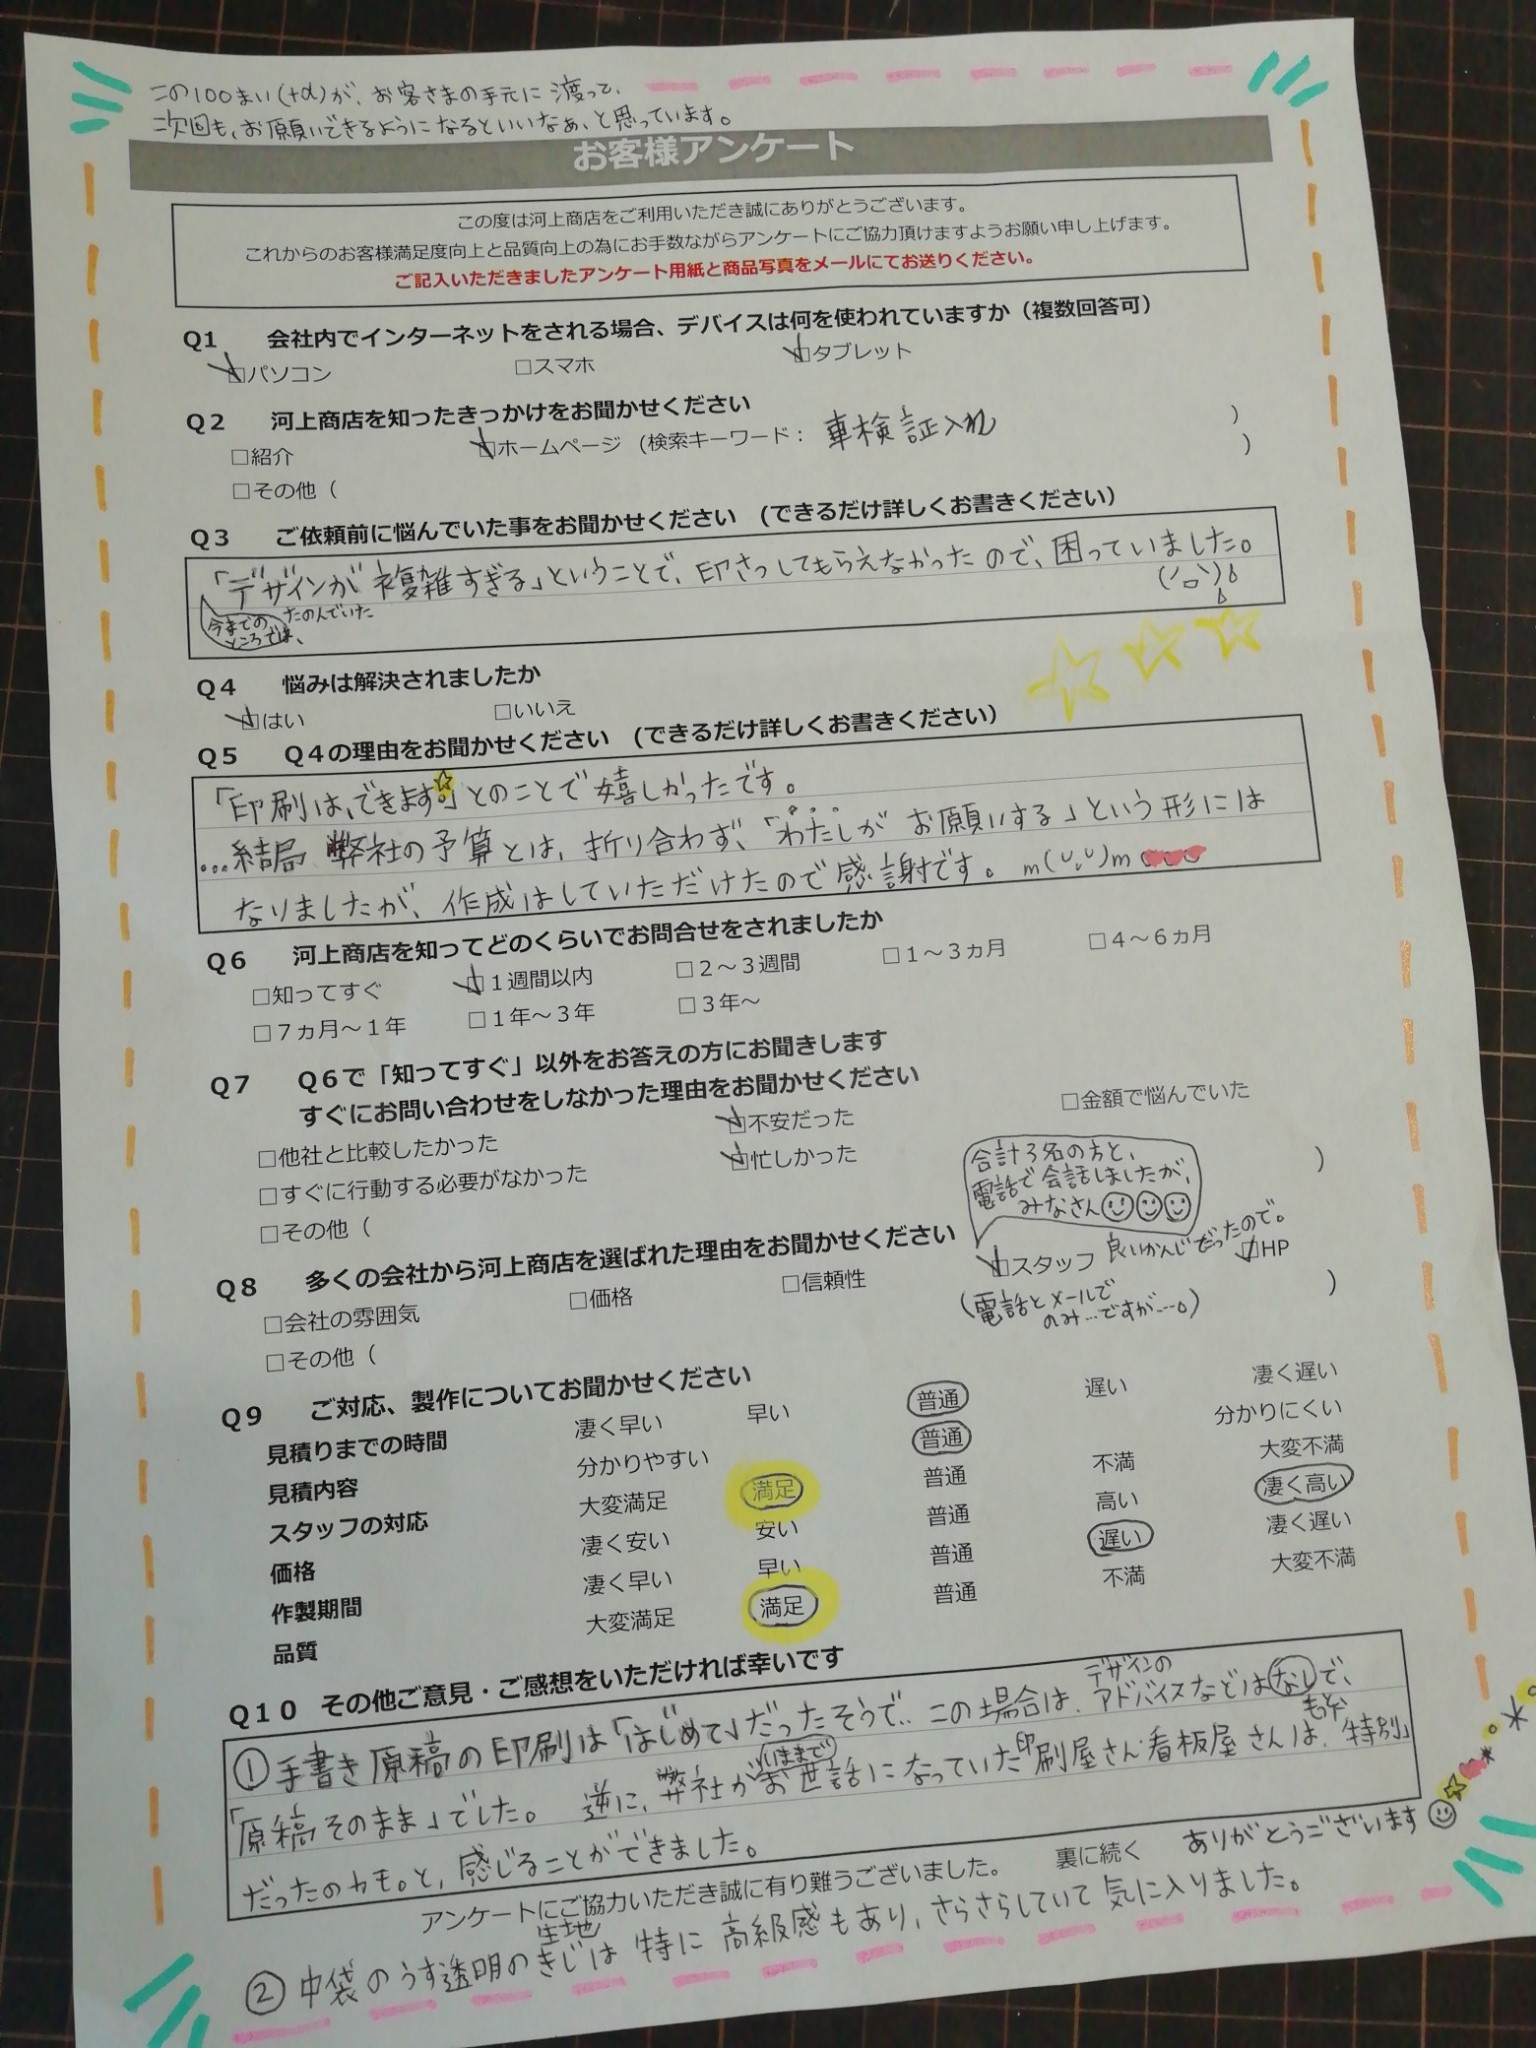 この100まい(+α)が、お客さまの手元に渡って、
次回も、お願いできるようになるといいなぁ、と思っています。
お客様アンケート
この度は河上商店をご利用いただき誠にありがとうございます。
これからのお客様満足度向上と品質向上の為にお手数ながらアンケートにご協力頂けますようお願い申し上げます。
ご記入いただきましたアンケート用紙と商品写真をメールにてお送りください。
Q1 会社内でインターネットをされる場合、デバイスは何を使われていますか（複数回答可）
☑パソコン □スマホ ☑タブレット
Q2 河上商店を知ったきっかけをお聞かせください
□紹介 ☑ホームページ （検索キーワード： 車検証入れ ）
□その他（ ）
Q3 ご依頼前に悩んでいた事をお聞かせください （できるだけ詳しくお書きください）
「デザインが複雑すぎる」ということで、印さつしてもらえなかったので、困っていました。
今までの、たのんでいた
ところでは、
Q4 悩みは解決されましたか
☑はい □いいえ
Q5 Q4の理由をお聞かせください （できるだけ詳しくお書きください）
「印刷は、できます。」とのことで嬉しかったです。
…結局 弊社の予算とは、折り合わず、「わたしが お願いする」という形には
なりましたが、作成はしていただけたので感謝です。m(∪.∪)m
Q6 河上商店を知ってどのくらいでお問合せをされましたか
□知ってすぐ ☑１週間以内 □２～３週間 □１～３ヵ月 □４～６ヵ月
□７ヵ月～１年 □１年～３年 □３年～
Q7 Q6で「知ってすぐ」以外をお答えの方にお聞きします
すぐにお問い合わせをしなかった理由をお聞かせください
□他社と比較したかった ☑不安だった □金額で悩んでいた
□すぐに行動する必要がなかった ☑忙しかった
□その他（ ）
合計3名の方と、
電話で会話しましたが、
みなさん☺☺☺
良いかんじだったので。
Q8 多くの会社から河上商店を選ばれた理由をお聞かせください
□会社の雰囲気 □価格 □信頼性 ☑スタッフ ☑HP
□その他（ ）
(電話とメールで
のみ…ですが…。)
Q9 ご対応、製作についてお聞かせください
見積りまでの時間 凄く早い 早い 普通 遅い 凄く遅い
見積内容 分かりやすい 普通 分かりにくい
スタッフの対応 大変満足 満足 普通 不満 大変不満
価格 凄く安い 安い 普通 高い 凄く高い
作製期間 凄く早い 早い 普通 遅い 凄く遅い
品質 大変満足 満足 普通 不満 大変不満
Q10 その他ご意見・ご感想をいただければ幸いです
①手書き原稿の印刷は「はじめて」だったそうで‥この場合は、デザインのアドバイスなどはなしで、
「原稿そのまま」でした。逆に、弊社がいままでお世話になっていた印刷屋さん・看板屋さんは、「特別」
だったのカモ。と、感じることができました。
アンケートにご協力いただき誠に有り難うございました。 裏に続く ありがとうございます☺
②中袋のうす透明のきじは特に高級感もあり、さらさらしていて気に入りました。
生地